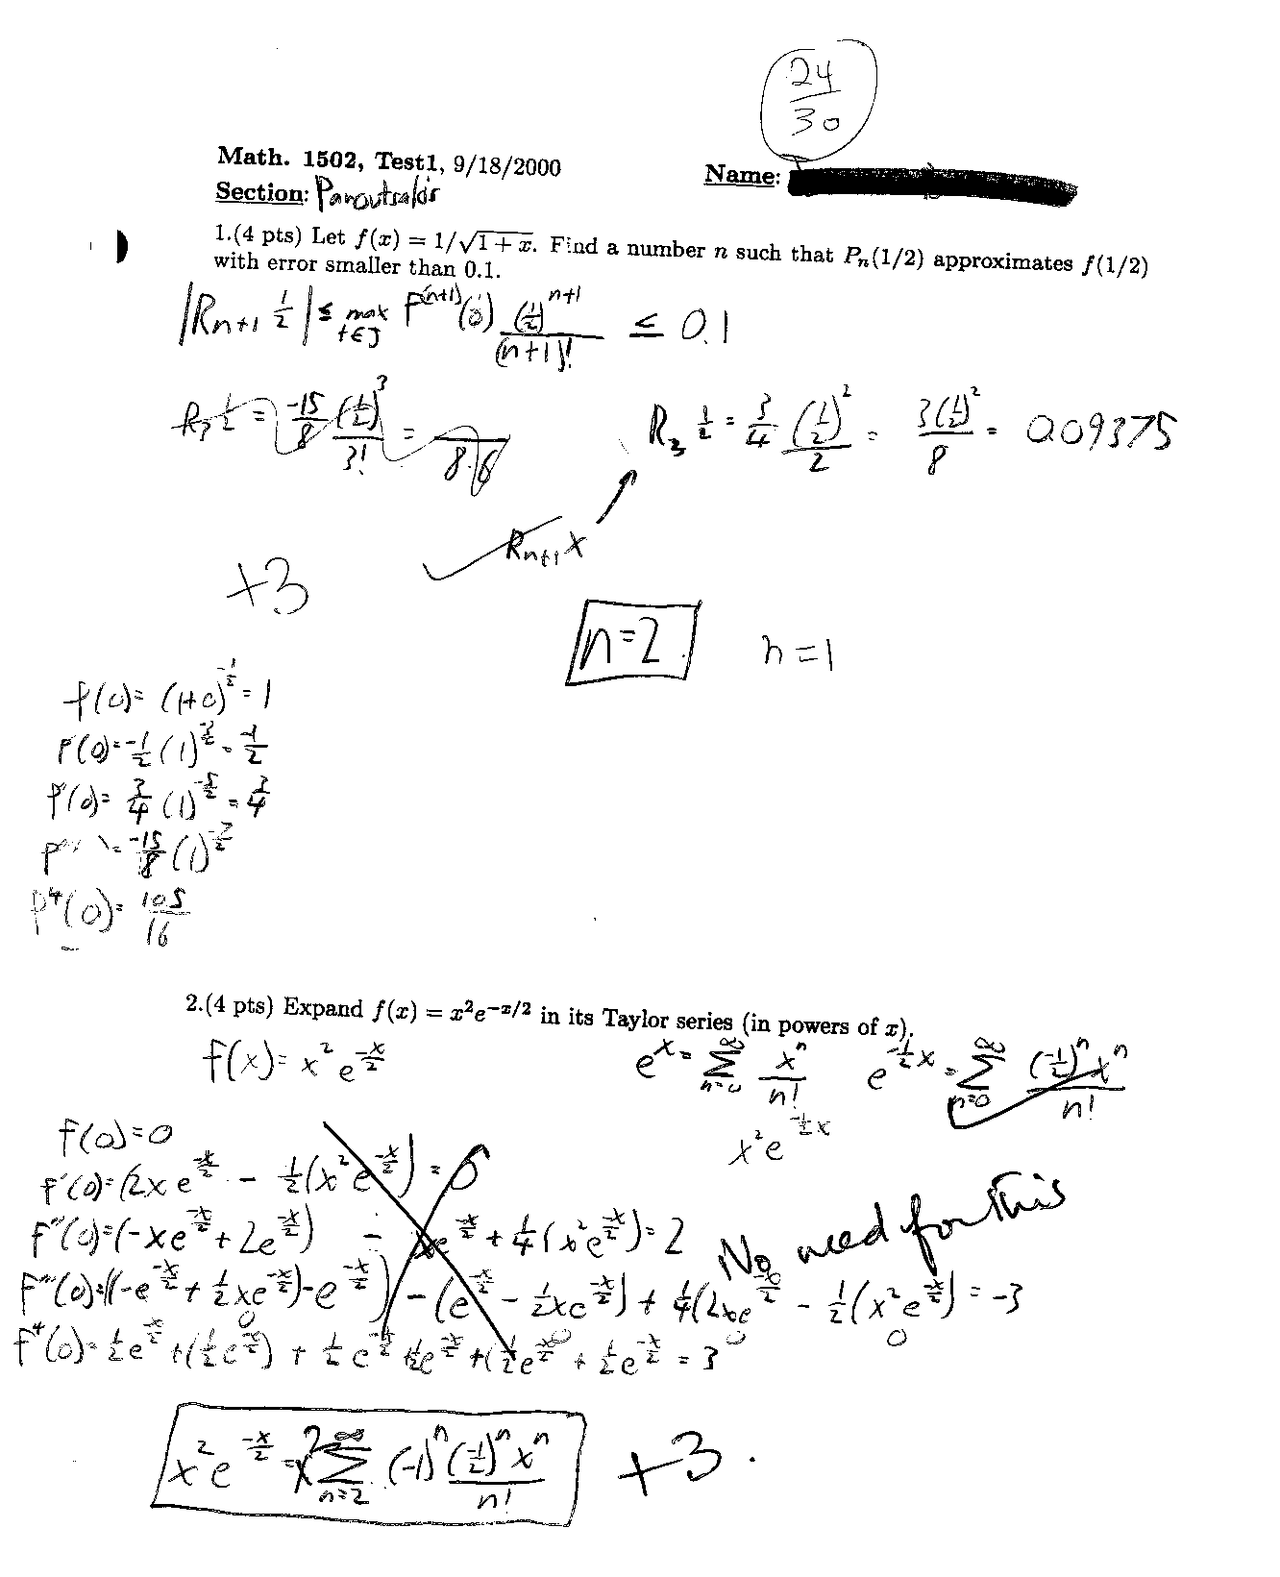 24/30
Math. 1502, Test1, 9/18/2000 Name:
Section: Paroutsalos
1.(4 pts) Let f(x) = 1/√(1 + x). Find a number n such that Pₙ(1/2) approximates f(1/2)
with error smaller than 0.1.
|Rn+1 1/2| ≤ max t∈J f^(n+1)(0) (1/2)^(n+1)/(n+1)! ≤ 0.1
R₃ 1/2 = -15/8 (1/2)³/3! = /8·6 R₃ 1/2 = 3/4 (1/2)²/2 = 3(1/2)²/8 = 0.09375
Rn+1 x
+3
n=2 n=1
f(0)= (1+0)^(-1/2) = 1
f'(0)= -1/2 (1)^(-3/2) = -1/2
f''(0)= 3/4 (1)^(-5/2) = 3/4
= -15/8 (1)^(-7/2)
f⁴(0)= 105/16
2.(4 pts) Expand f(x) = x²e^(−x/2) in its Taylor series (in powers of x).
f(x)= x² e^(-x/2) e^x = ∞ Σ n=0 x^n/n! e^(-1/2 x) = ∞ Σ n=0 (-1/2)^n x^n/n!
f(0)=0 x² e^(-1/2 x)
f'(0)= (2x e^(-x/2) - 1/2(x² e^(-x/2)) = 0
No need for This
f''(0)=(-xe^(-x/2) + 2e^(-x/2)) - xe^(-x/2) + 1/4(x²e^(-x/2)) = 2
f'''(0)=((-e^(-x/2) + 1/2xe^(-x/2)) - e^(-x/2)) - (e^(-x/2) - 1/2xe^(-x/2)) + 1/4(2xe^(-x/2) - 1/2(x²e^(-x/2)) = -3
f⁴(0)= 1/2e^(-x/2) + (1/2e^(-x/2)) + 1/2e^(-x/2) + 1/2e^(-x/2) + (1/2e^(-x/2) + 1/2e^(-x/2) = 3
x² e^(-x/2) = x² ∞ Σ n=2 (-1)^n (-1/2)^n x^n/n! +3.